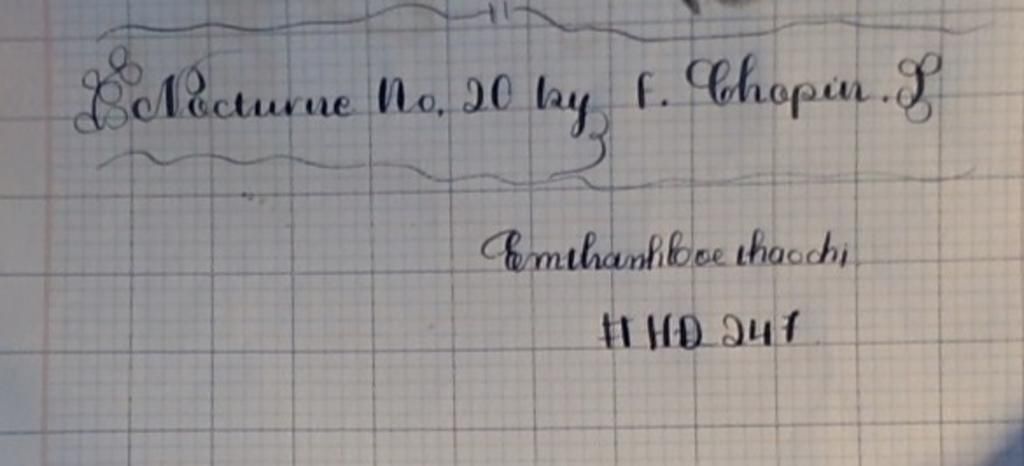 Nocturne No. 20 by F. Chopin.
Emthanhhoe chaochi
HHD 247